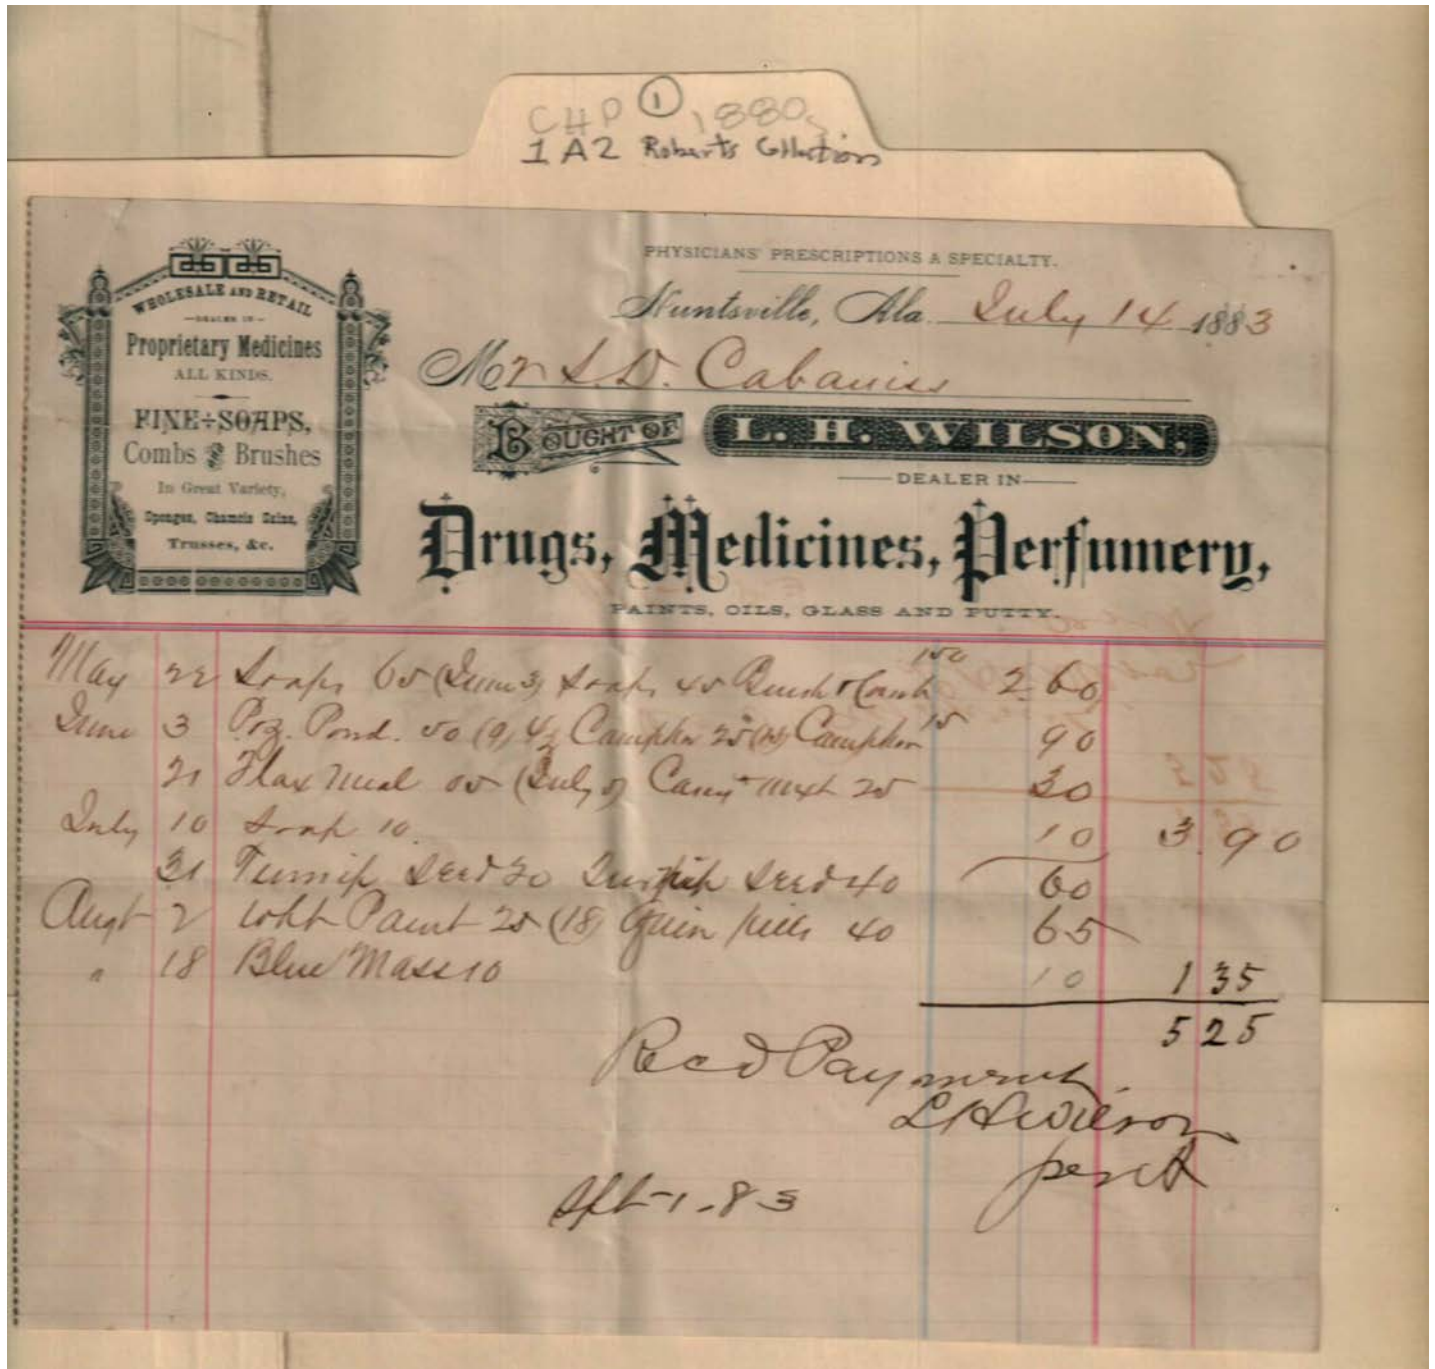 CHP ① 1880s
1A2 Roberts Collection
WHOLESALE AND RETAIL
—DEALER IN—
Proprietary Medicines
ALL KINDS.
FINE÷SOAPS,
Combs & Brushes
In Great Variety,
Sponges, Chamois Skins,
Trusses, &c.
PHYSICIANS' PRESCRIPTIONS A SPECIALTY.
Huntsville, Ala. July 14 1883
Mr S. D. Cabaniss
BOUGHT OF L. H. WILSON,
DEALER IN
Drugs, Medicines, Perfumery,
PAINTS, OILS, GLASS AND PUTTY.
May 22 Soaps 60 (June 3) Soaps 40 Brush & Comb 150 2 60
June 3 Poz. Pond. 50 (9) Camphor 25 Camphor 15 90
21 Flax meal 05 (July 5) mixt 25 30
July 10 Soap 10 10 3 90
31 Turnip Seed 20 Turnip Seed 40 60
Augt 2 Wht Paint 25 (18) Quin pills 40 65
" 18 Blue Mass 10 10 1 35
5 25
Recd Payment
L H Wilson
per
Spt-1-83